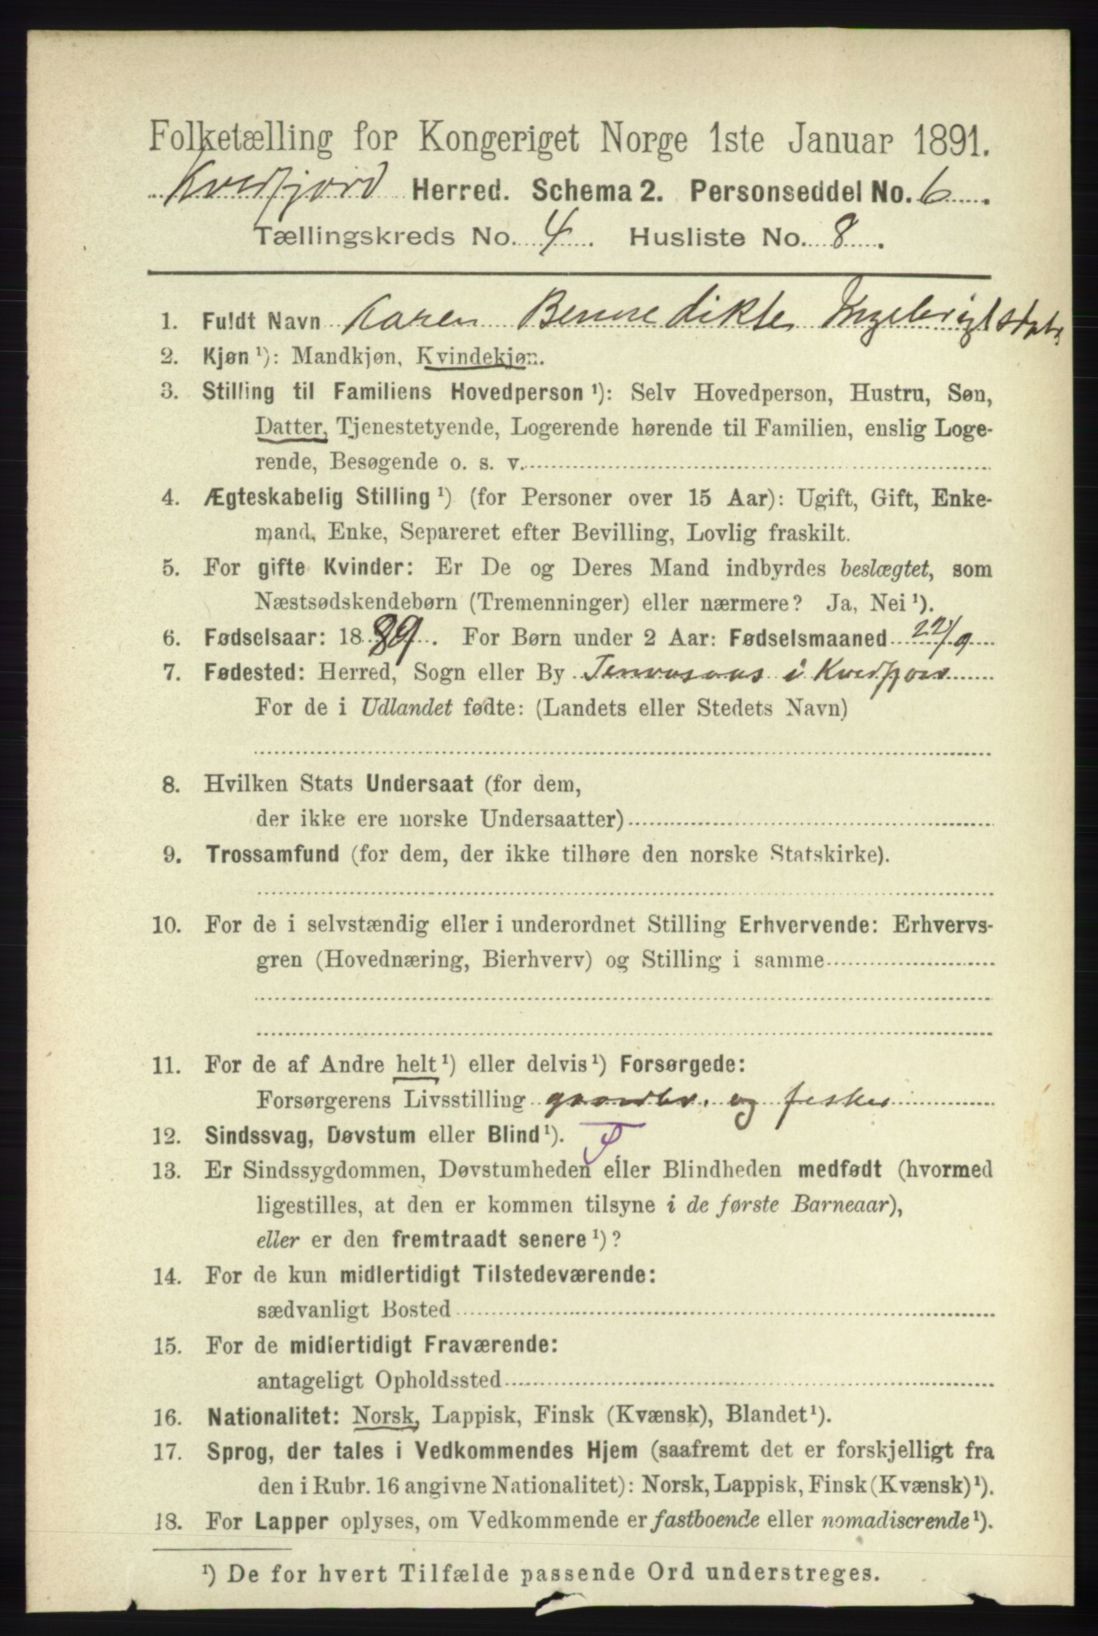 Folketælling for Kongeriget Norge 1ste Januar 1891.
Kvedfjord Herred. Schema 2. Personseddel No. 6.
Tællingskreds No. 4. Husliste No. 8.
1. Fuldt Navn Karen Bennedikte Ingebrigtsdatr
2. Kjøn ¹): Mandkjøn, Kvindekjøn.
3. Stilling til Familiens Hovedperson ¹): Selv Hovedperson, Hustru, Søn,
Datter, Tjenestetyende, Logerende hørende til Familien, enslig Loge-
rende, Besøgende o. s. v.
4. Ægteskabelig Stilling ¹) (for Personer over 15 Aar): Ugift, Gift, Enke-
mand, Enke, Separeret efter Bevilling, Lovlig fraskilt.
5. For gifte Kvinder: Er De og Deres Mand indbyrdes beslægtet, som
Næstsødskendebørn (Tremenninger) eller nærmere? Ja, Nei ¹).
6. Fødselsaar: 1889. For Børn under 2 Aar: Fødselsmaaned 22/9
7. Fødested: Herred, Sogn eller By i Kvedfjord
For de i Udlandet fødte: (Landets eller Stedets Navn)
8. Hvilken Stats Undersaat (for dem,
der ikke ere norske Undersaatter)
9. Trossamfund (for dem, der ikke tilhøre den norske Statskirke).
10. For de i selvstændig eller i underordnet Stilling Erhvervende: Erhvervs-
gren (Hovednæring, Bierhverv) og Stilling i samme
11. For de af Andre helt ¹) eller delvis ¹) Forsørgede:
Forsørgerens Livsstilling gaardbr. og fisker
12. Sindssvag, Døvstum eller Blind ¹).
13. Er Sindssygdommen, Døvstumheden eller Blindheden medfødt (hvormed
ligestilles, at den er kommen tilsyne i de første Barneaar),
eller er den fremtraadt senere ¹)?
14. For de kun midlertidigt Tilstedeværende:
sædvanligt Bosted
15. For de midlertidigt Fraværende:
antageligt Opholdssted
16. Nationalitet: Norsk, Lappisk, Finsk (Kvænsk), Blandet ¹).
17. Sprog, der tales i Vedkommendes Hjem (saafremt det er forskjelligt fra
den i Rubr. 16 angivne Nationalitet): Norsk, Lappisk, Finsk (Kvænsk) ¹).
18. For Lapper oplyses, om Vedkommende er fastboende eller nomadiserende ¹).
¹) De for hvert Tilfælde passende Ord understreges.